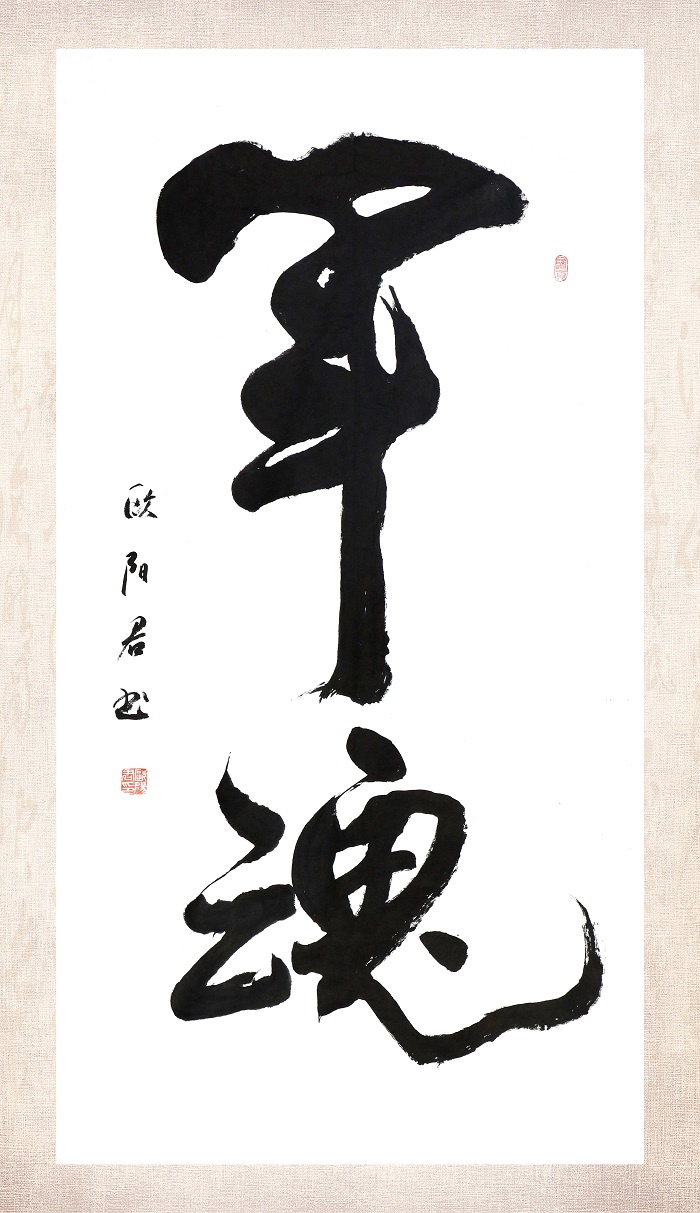 军魂
欧阳君书